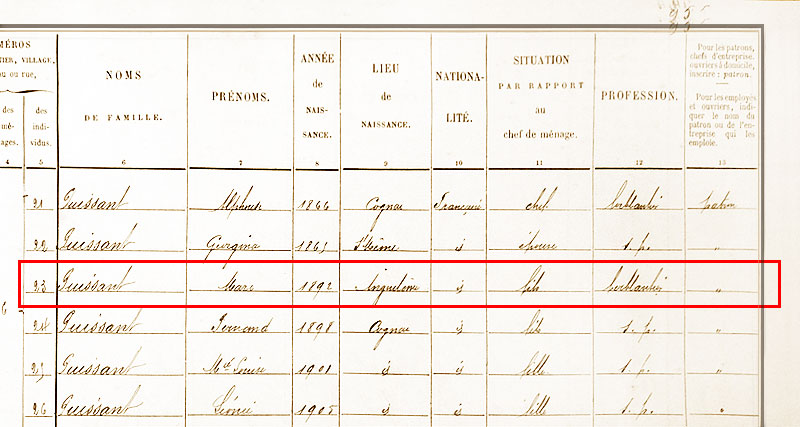 MÉROS
TIER, VILLAGE,
ou ou rue,
des
mé-
ages.
des
indi-
vidus.
NOMS
DE FAMILLE.
PRÉNOMS.
ANNÉE
de
NAIS-
SANCE.
LIEU
de
NAISSANCE.
NATIONA-
LITÉ.
SITUATION
PAR RAPPORT
au
chef de ménage.
PROFESSION.
Pour les patrons,
chefs d'entreprise.
ouvriers à domicile,
inscrire : patron.
Pour les employés
et ouvriers, indi-
quer le nom du
patron ou de l'en-
treprise qui les
emploie.
4 5 6 7 8 9 10 11 12 13
21 Guissant Alphonse 1866 Cognac Française chef ferblantier patron
22 Guissant Georgina 1869 id épouse s. p. "
23 Guissant Marc 1892 Angoulême id fils ferblantier "
24 Guissant Fernand 1898 Cognac id fils s. p. "
25 Guissant Mle Louise 1901 id id fille s. p. "
26 Guissant Léonie 1905 id id fille s. p. "